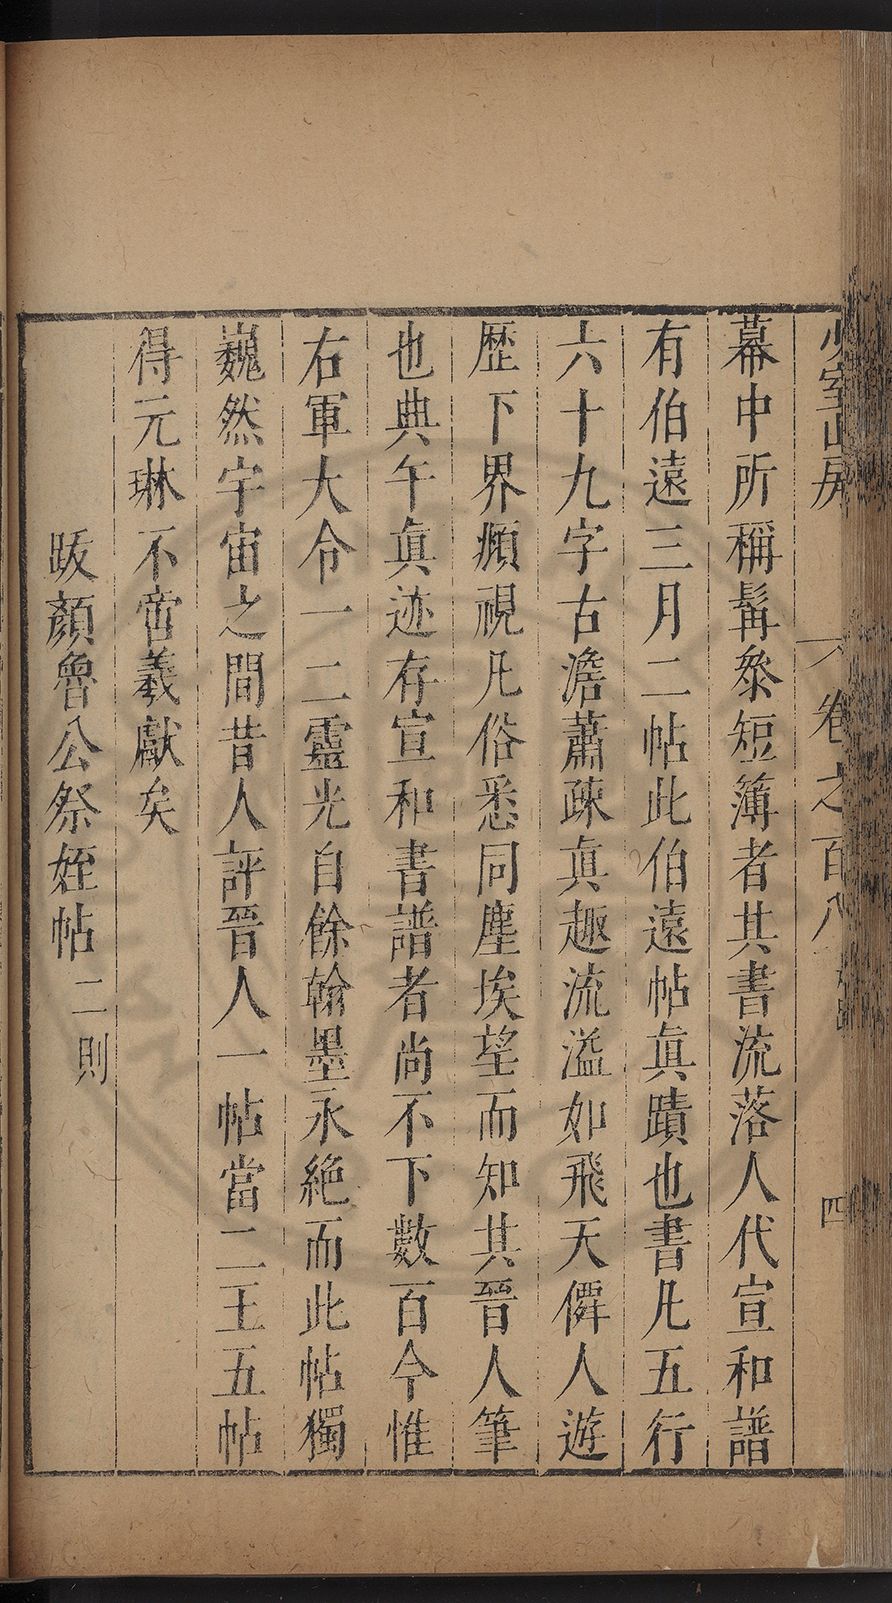 少室山房
卷之百八
四
幕中所稱髯叅短簿者其書流落人代宣和譜
有伯遠三月二帖此伯遠帖眞蹟也書凡五行
六十九字古澹蕭疎眞趣流溢如飛天僊人遊
歷下界頫視凡俗悉同塵埃望而知其晉人筆
也典午眞迹存宣和書譜者尚不下數百今惟
右軍大令一二靈光自餘翰墨永絕而此帖獨
巍然宇宙之間昔人評晉人一帖當二王五帖
得元琳不啻羲獻矣
跋顏魯公祭姪帖二則